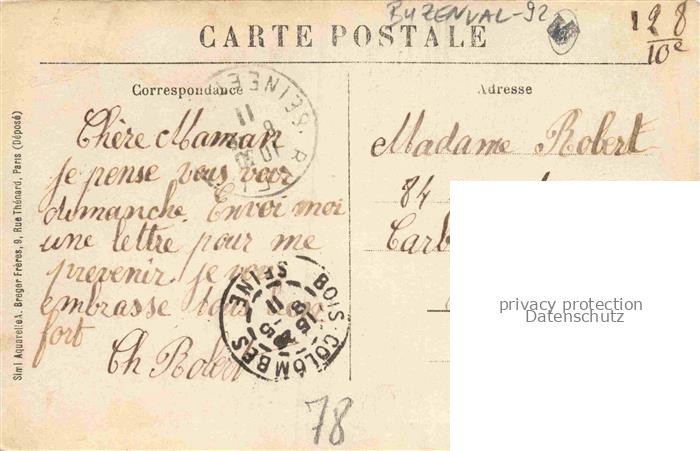 BUZENVAL-92
CARTE POSTALE
Correspondance
Adresse
Chère Maman
je pense vous voir
dimanche. Envoi moi
une lettre pour me
prevenir je vous
embrasse tous bien
fort
Ch Robert
Madame Robert
84
Carb
Simi Aquarelle A. Breger Frères, 9, Rue Thénard, Paris (Déposé)
BOIS-COLOMBES
SEINE
privacy protection
Datenschutz
78